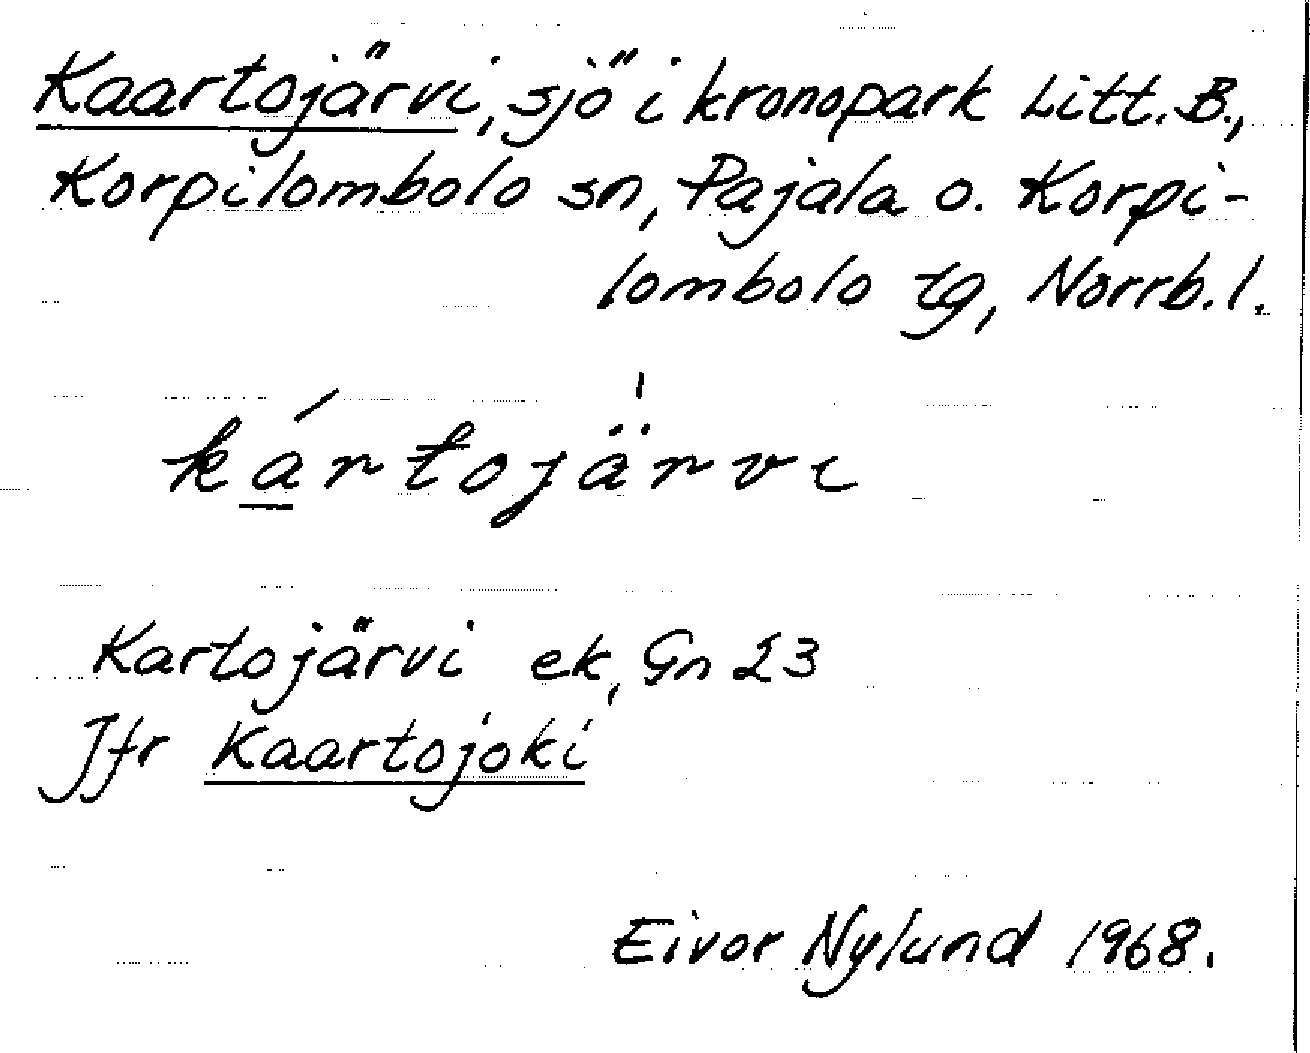 Kaartojärvi, sjö i kronopark Litt. B.,
Korpilombolo sn, Pajala o. Korpi-
lombolo tg, Norrb. l.
ká̲rtojä̍rvi
Kartojärvi ek, Gn 23
Jfr Kaartojoki
Eivor Nylund 1968.